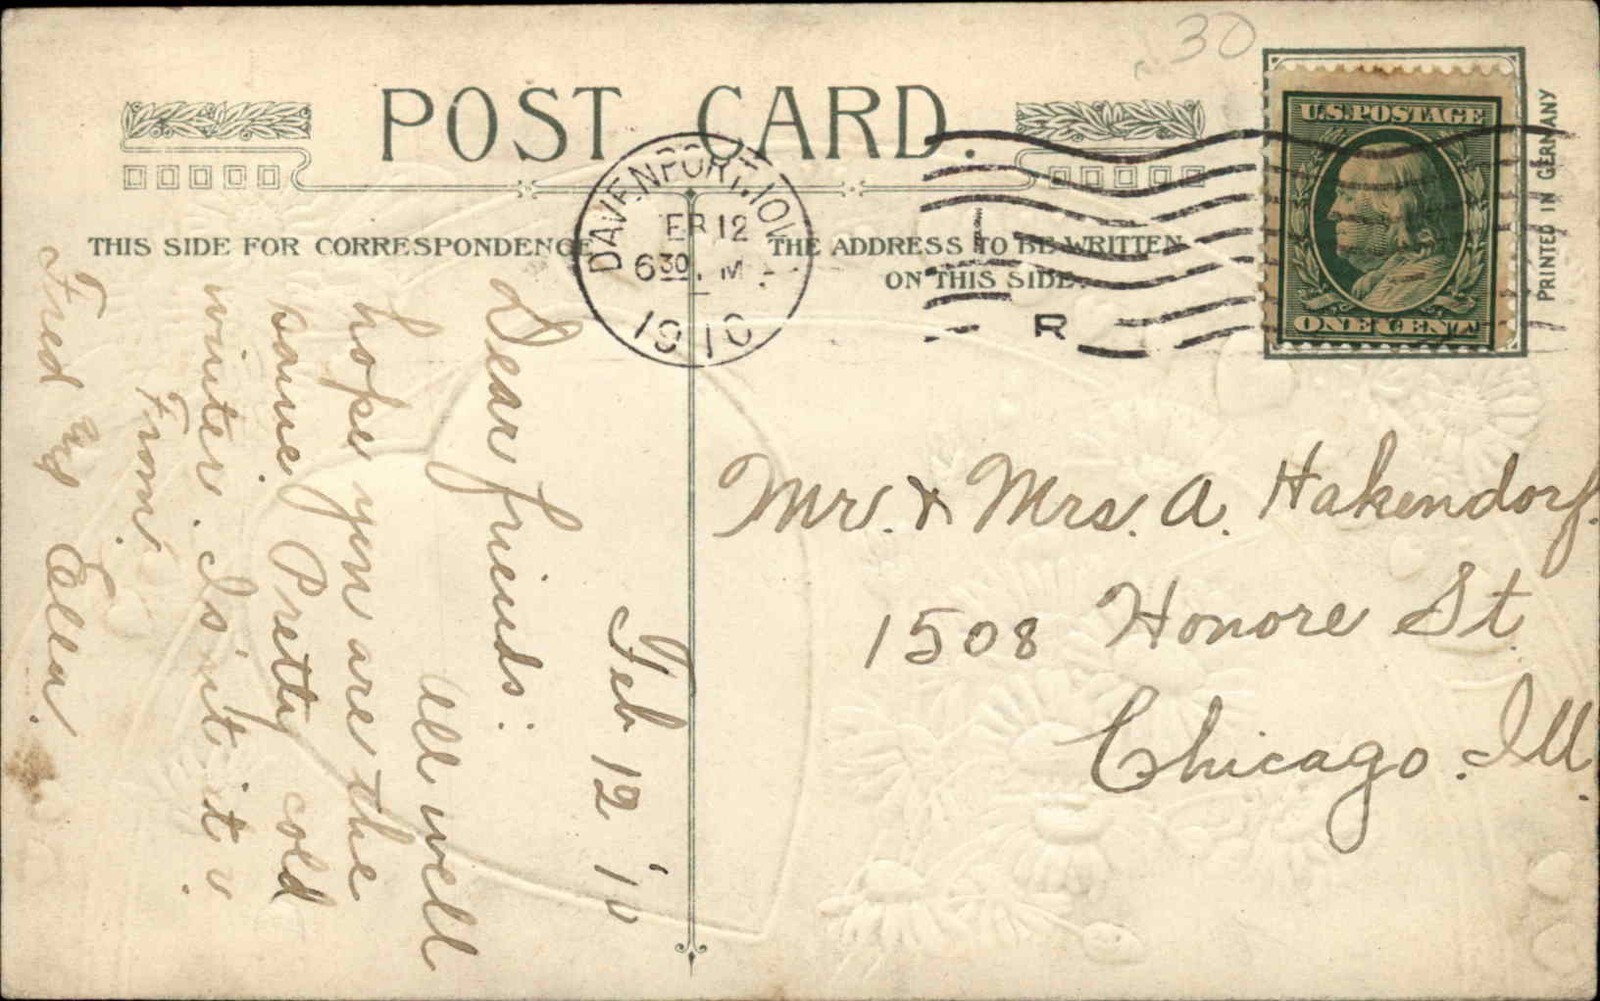 30
POST CARD.
U.S. POSTAGE
ONE CENT
PRINTED IN GERMANY
DAVENPORT, IOW
FEB 12
6 30 M
1910
R
THIS SIDE FOR CORRESPONDENCE
THE ADDRESS TO BE WRITTEN
ON THIS SIDE.
Feb 12 '10
Dear friends:
All well
hope you are the
same. Pretty cold
winter. Is'nt it
From
Fred and Ella.
Mr. & Mrs. A. Hakendorf.
1508 Honore St
Chicago. Ill.